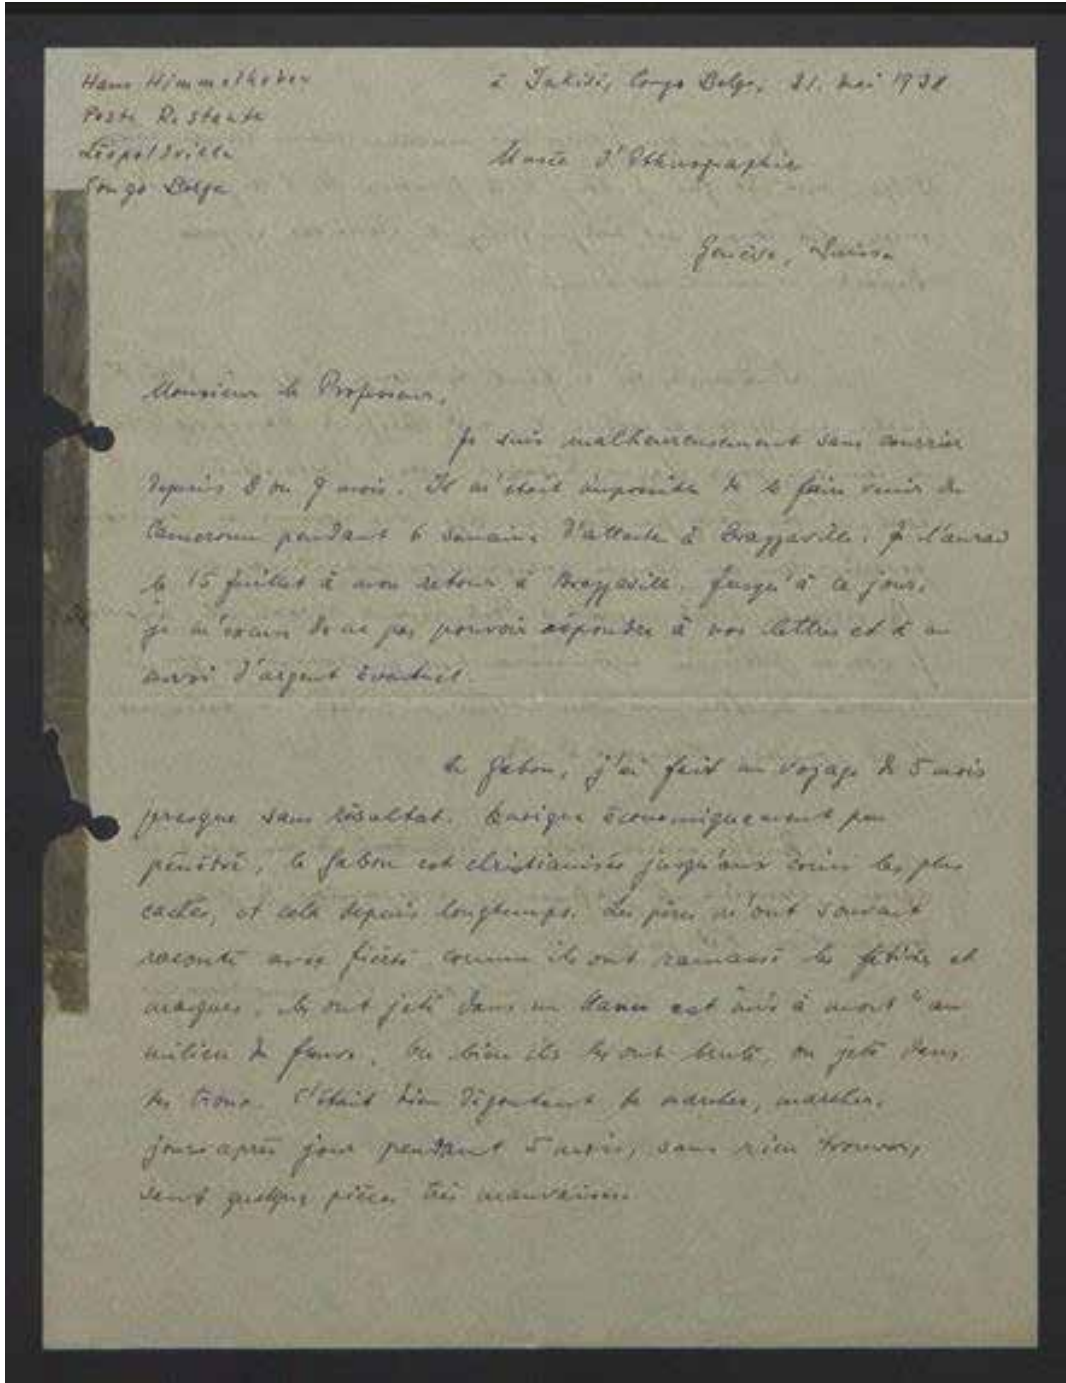 Hans Himmelheber
Poste Restante
Léopoldville
Congo Belge
à Inkisi, Congo Belge, 21. mai 1938
Musée d'Ethnographie
Genève, Suisse
Monsieur le Professeur,
Je suis malheureusement sans courrier
depuis 8 ou 9 mois. Il m'était impossible de le faire venir du
Cameroun pendant 6 semaines d'attente à Brazzaville. Je l'aurai
le 15 juillet à mon retour à Brazzaville. Jusqu'à ce jour,
je m'excuse de ne pas pouvoir répondre à vos lettres et à un
envoi d'argent éventuel.
Le Gabon, j'ai fait un voyage de 5 mois
presque sans résultat. économiquement peu
pénétré, le Gabon est christianisé jusqu'aux coins les plus
cachés, et cela depuis longtemps. Les pères m'ont souvent
raconté avec fierté comme ils ont ramassé les fétiches et
masques, les ont jeté dans un "mis à mort" au
milieu du fleuve, ou bien ils les ont brulé, ou jeté dans
des trous. C'était bien dégoutant de marcher, marcher,
jour après jour pendant 5 mois, sans rien trouver,
sauf quelques pièces très mauvaises.